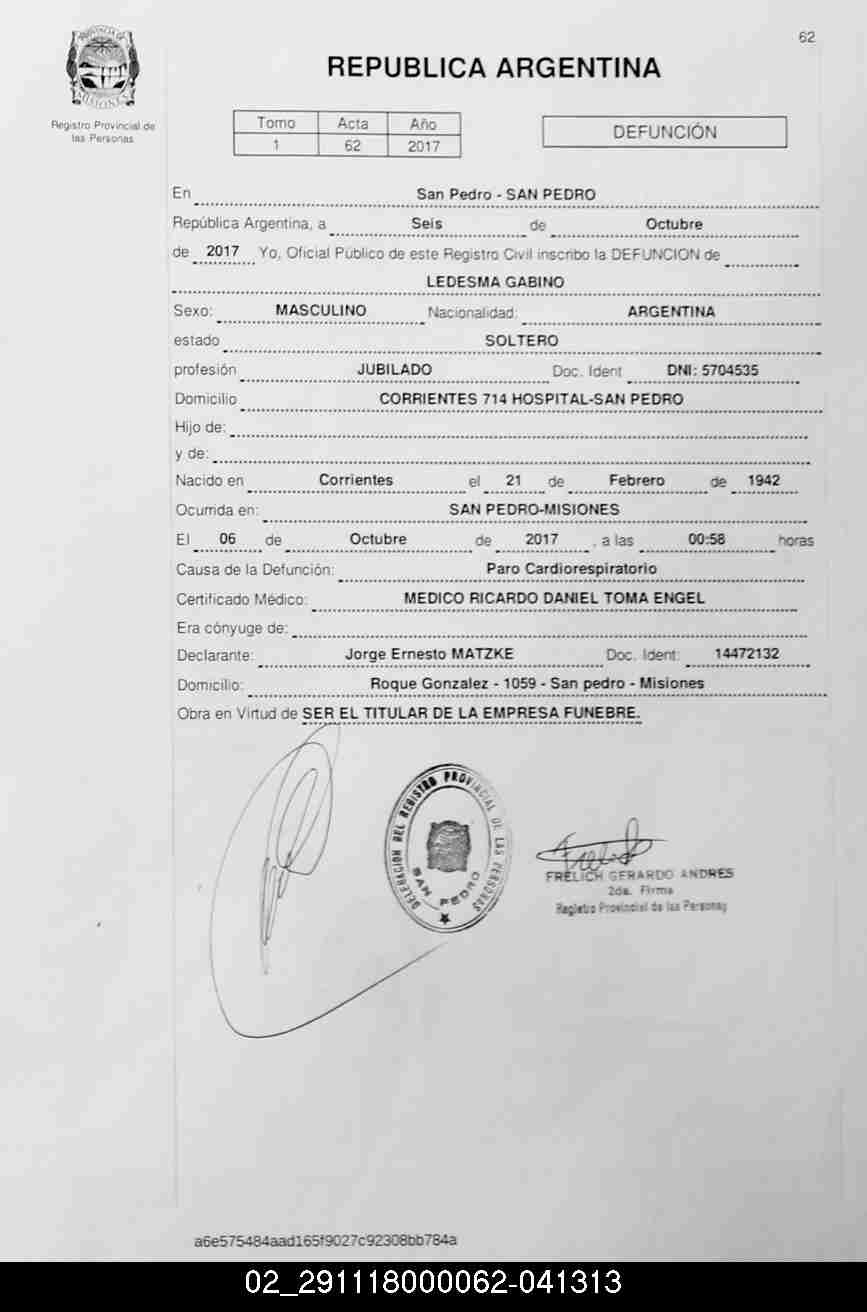 62
PROVINCIA DE
MISIONES
REPUBLICA ARGENTINA
Registro Provincial de
las Personas
Tomo Acta Año
1 62 2017
DEFUNCIÓN
En San Pedro - SAN PEDRO
República Argentina, a Seis de Octubre
de 2017 Yo, Oficial Público de este Registro Civil inscribo la DEFUNCION de
LEDESMA GABINO
Sexo: MASCULINO Nacionalidad: ARGENTINA
estado SOLTERO
profesión JUBILADO Doc. Ident DNI: 5704535
Domicilio CORRIENTES 714 HOSPITAL-SAN PEDRO
Hijo de:
y de:
Nacido en Corrientes el 21 de Febrero de 1942
Ocurrida en: SAN PEDRO-MISIONES
El 06 de Octubre de 2017, a las 00:58 horas
Causa de la Defunción: Paro Cardiorespiratorio
Certificado Médico: MEDICO RICARDO DANIEL TOMA ENGEL
Era cónyuge de:
Declarante: Jorge Ernesto MATZKE Doc. Ident: 14472132
Domicilio: Roque Gonzalez - 1059 - San pedro - Misiones
Obra en Virtud de SER EL TITULAR DE LA EMPRESA FUNEBRE.
DELEGACION DEL REGISTRO PROVINCIAL DE LAS PERSONAS
SAN PEDRO
FRELICH GERARDO ANDRES
2da. Firma
Registro Provincial de las Personas
a6e575484aad165f9027c92308bb784a
02_291118000062-041313